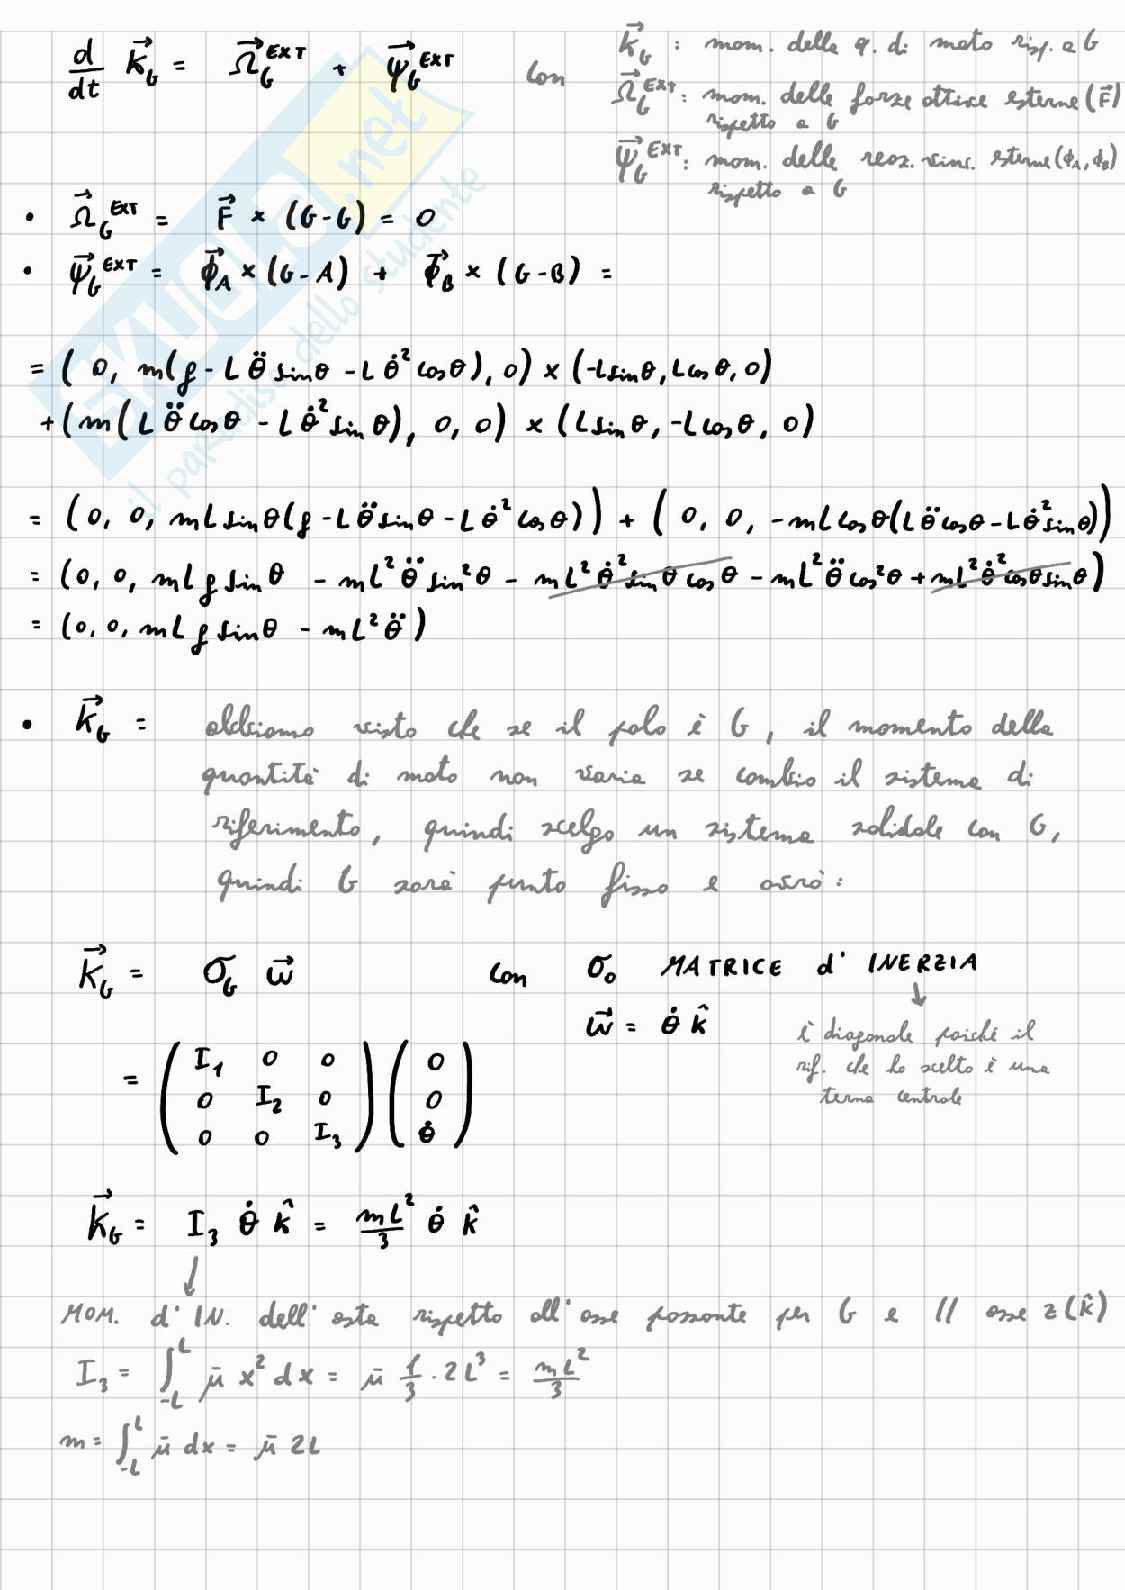 d/dt k⃗_G = Ω⃗_G^EXT + ψ⃗_G^EXT con
k⃗_G : mom. della q. di moto risp. a G
Ω⃗_G^EXT : mom. delle forze attive esterne (F⃗)
rispetto a G
ψ⃗_G^EXT : mom. delle reaz. vinc. esterne (ϕ_A, ϕ_B)
rispetto a G
• Ω⃗_G^EXT = F⃗ × (G-G) = 0
• ψ⃗_G^EXT = ϕ⃗_A × (G-A) + ϕ⃗_B × (G-B) =
= (0, m(g - Lθ̈ sinθ - Lθ̇² cosθ), 0) × (-Lsinθ, Lcosθ, 0)
+ (m(Lθ̈ cosθ - Lθ̇² sinθ), 0, 0) × (Lsinθ, -Lcosθ, 0)
= (0, 0, mLsinθ(g - Lθ̈ sinθ - Lθ̇² cosθ)) + (0, 0, -mLcosθ(Lθ̈ cosθ - Lθ̇² sinθ))
= (0, 0, mLg sinθ - mL²θ̈ sin²θ - mL²θ̇² sinθ cosθ - mL²θ̈ cos²θ + mL²θ̇² cosθ sinθ)
= (0, 0, mLg sinθ - mL²θ̈)
• k⃗_G = abbiamo visto che se il polo è G, il momento della
quantità di moto non varia se cambio il sistema di
riferimento, quindi scelgo un sistema solidale con G,
quindi G sarà punto fisso e avrò:
k⃗_G = σ_G ω⃗ con σ_0 MATRICE d'INERZIA
ω⃗ = θ̇ k̂
è diagonale poiché il
rif. che ho scelto è una
terna centrale
= (I₁ 0 0) (0)
(0 I₂ 0) (0)
(0 0 I₃) (θ̇)
k⃗_G = I₃ θ̇ k̂ = mL²/3 θ̇ k̂
MOM. d'IN. dell'asta rispetto all'asse passante per G e // asse z (k̂)
I₃ = ∫_{-L}^{L} μ̄ x² dx = μ̄ 1/3 · 2L³ = mL²/3
m = ∫_{-L}^{L} μ̄ dx = μ̄ 2L
SKUOLA.net
il paradiso dello studente